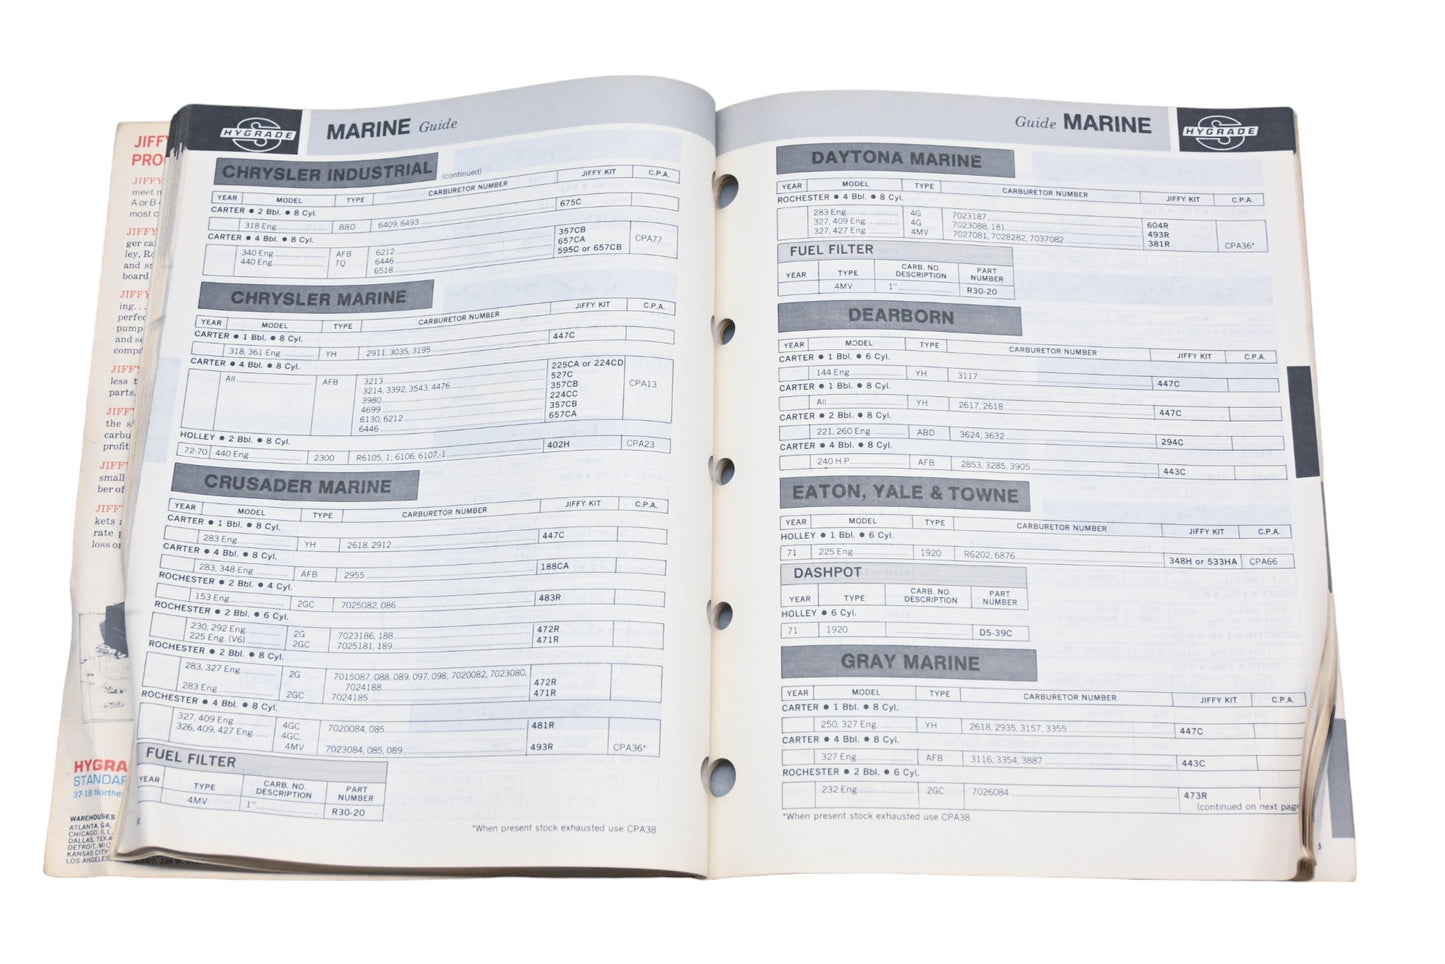 JIFFY
PRO
JIFFY
meet n
A or B
most c
JIFFY
ger ca
ley, Ro
and sn
board
JIFFY
ing...
perfec
pump
and se
comp
JIFF
less t
parts,
JIFF
the s
carbu
profit
JIFF
small
ber of
JIFF
kets a
rate p
loss or
HYGRA
STANDAR
37-18 Northe
WAREHOUSES
ATLANTA, GA.
CHICAGO, ILL.
DALLAS, TEXA
DETROIT, MIC
KANSAS CITY
LOS ANGELES,
HYGRADE
MARINE Guide
CHRYSLER INDUSTRIAL (continued)
YEAR MODEL TYPE CARBURETOR NUMBER JIFFY KIT C.P.A.
CARTER ● 2 Bbl. ● 8 Cyl.
318 Eng. BBD 6409, 6493 675C
CARTER ● 4 Bbl. ● 8 Cyl.
340 Eng. AFB 6212 357CB CPA77
440 Eng. TQ 6446 657CA
6518 595C or 657CB
CHRYSLER MARINE
YEAR MODEL TYPE CARBURETOR NUMBER JIFFY KIT C.P.A.
CARTER ● 1 Bbl. ● 8 Cyl.
318, 361 Eng. YH 2911, 3035, 3195 447C
CARTER ● 4 Bbl. ● 8 Cyl.
All AFB 3213 225CA or 224CD CPA13
3214, 3392, 3543, 4476 527C
3980 357CB
4699 224CC
6130, 6212 357CB
6446 657CA
HOLLEY ● 2 Bbl. ● 8 Cyl.
72-70 440 Eng. 2300 R6105,-1, 6106, 6107,-1 402H CPA23
CRUSADER MARINE
YEAR MODEL TYPE CARBURETOR NUMBER JIFFY KIT C.P.A.
CARTER ● 1 Bbl. ● 8 Cyl.
283 Eng. YH 2618, 2912 447C
CARTER ● 4 Bbl. ● 8 Cyl.
283, 348 Eng. AFB 2955 188CA
ROCHESTER ● 2 Bbl. ● 4 Cyl.
153 Eng. 2GC 7025082, 086 483R
ROCHESTER ● 2 Bbl. ● 6 Cyl.
230, 292 Eng. 2G 7023186, 188 472R
225 Eng. (V6) 2GC 7025181, 189 471R
ROCHESTER ● 2 Bbl. ● 8 Cyl.
283, 327 Eng. 2G 7015087, 088, 089, 097, 098, 7020082, 7023080,
7024188 472R
283 Eng. 2GC 7024185 471R
ROCHESTER ● 4 Bbl. ● 8 Cyl.
327, 409 Eng. 4GC 7020084, 085 481R
326, 409, 427 Eng. 4GC,
4MV 7023084, 085, 089 493R CPA36*
FUEL FILTER
YEAR TYPE CARB. NO. DESCRIPTION PART NUMBER
4MV 1" R30-20
6
*When present stock exhausted use CPA38
Guide MARINE
HYGRADE
DAYTONA MARINE
YEAR MODEL TYPE CARBURETOR NUMBER JIFFY KIT C.P.A.
ROCHESTER ● 4 Bbl. ● 8 Cyl.
283 Eng. 4G 7023187 604R
327, 409 Eng. 4G 7023088, 181 493R
327, 427 Eng. 4MV 7027081, 7028282, 7037082 381R CPA36*
FUEL FILTER
YEAR TYPE CARB. NO. DESCRIPTION PART NUMBER
4MV 1" R30-20
DEARBORN
YEAR MODEL TYPE CARBURETOR NUMBER JIFFY KIT C.P.A.
CARTER ● 1 Bbl. ● 6 Cyl.
144 Eng. YH 3117 447C
CARTER ● 1 Bbl. ● 8 Cyl.
All YH 2617, 2618 447C
CARTER ● 2 Bbl. ● 8 Cyl.
221, 260 Eng. ABD 3624, 3632 294C
CARTER ● 4 Bbl. ● 8 Cyl.
240 H.P. AFB 2853, 3285, 3905 443C
EATON, YALE & TOWNE
YEAR MODEL TYPE CARBURETOR NUMBER JIFFY KIT C.P.A.
HOLLEY ● 1 Bbl. ● 6 Cyl.
71 225 Eng. 1920 R6202, 6876 348H or 533HA CPA66
DASHPOT
YEAR TYPE CARB. NO. DESCRIPTION PART NUMBER
HOLLEY ● 6 Cyl.
71 1920 D5-39C
GRAY MARINE
YEAR MODEL TYPE CARBURETOR NUMBER JIFFY KIT C.P.A.
CARTER ● 1 Bbl. ● 8 Cyl.
250, 327 Eng. YH 2618, 2935, 3157, 3355 447C
CARTER ● 4 Bbl. ● 8 Cyl.
327 Eng. AFB 3116, 3354, 3887 443C
ROCHESTER ● 2 Bbl. ● 6 Cyl.
232 Eng. 2GC 7026084 473R
(continued on next page
*When present stock exhausted use CPA38